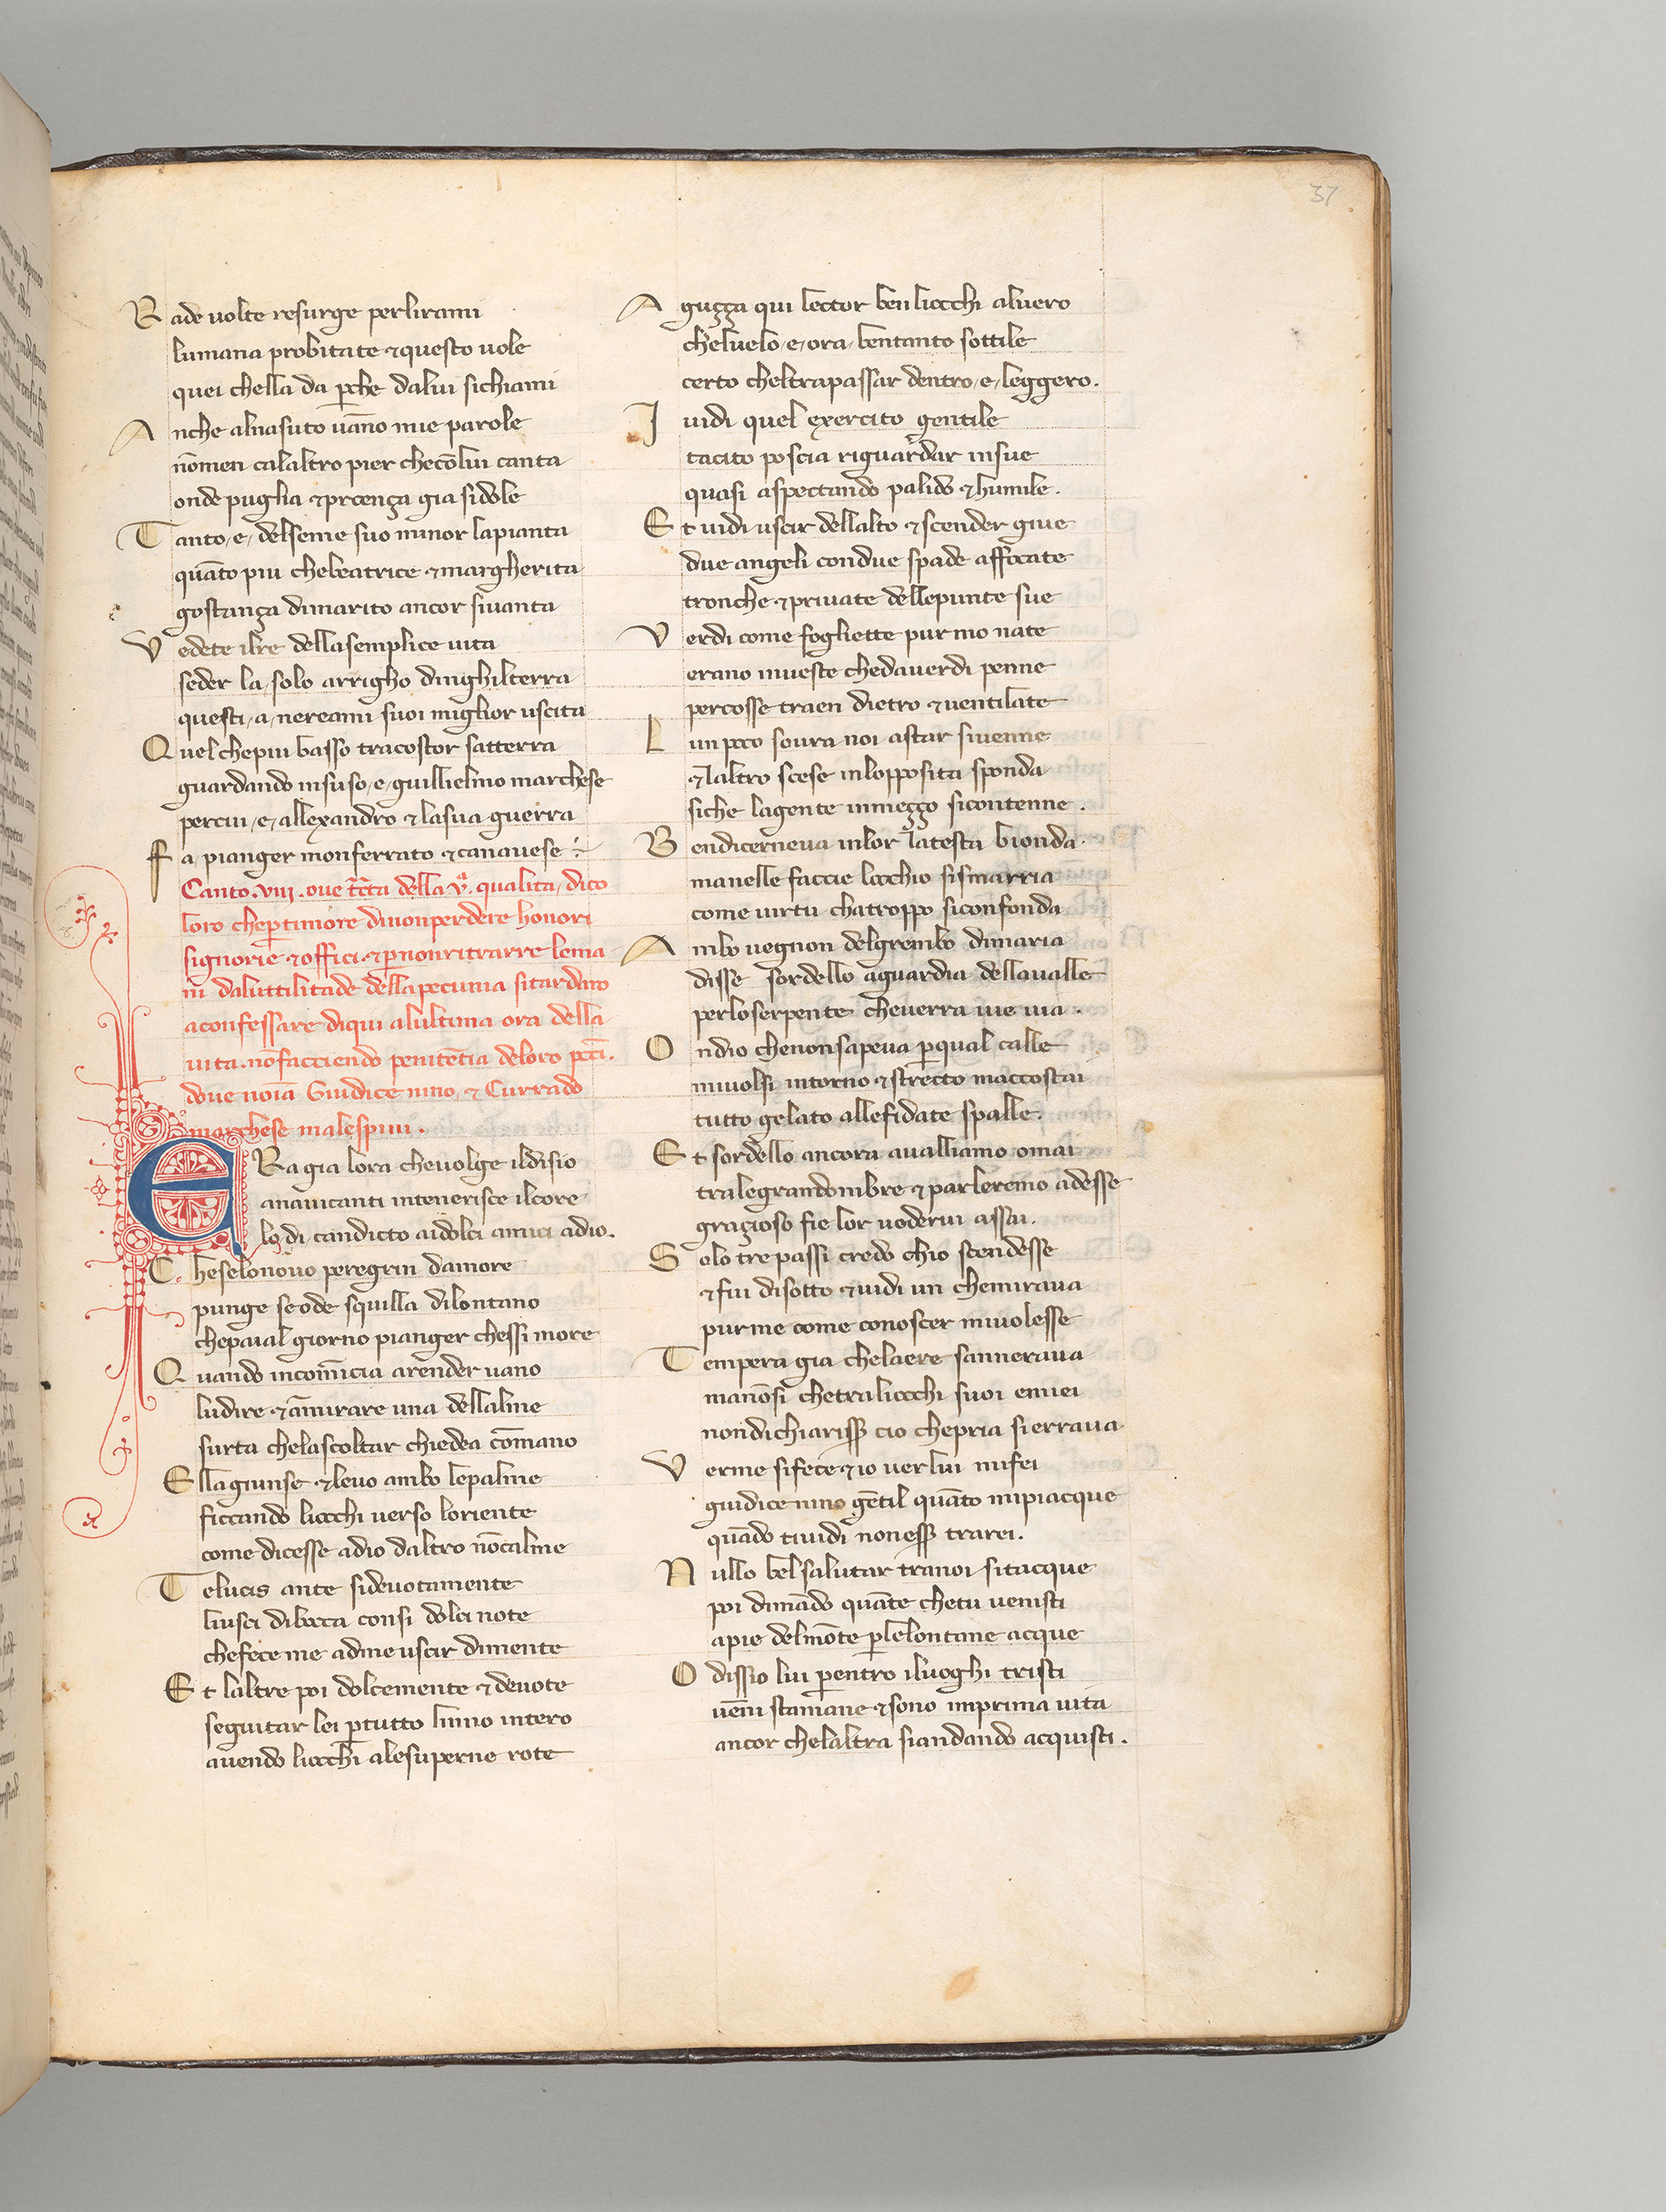 37
Rade uolte resurge perlirami
lumana probitate ⁊questo uole
quei chella da ꝑche dalui sichiami
Anche alnasuto uāno mie parole
nōmen calaltro pier checōlui canta
onde puglia ⁊prcença gia sidole
Tanto,e, delseme suo minor lapianta
quāto piu chebeatrice ⁊margherita
gostança dimarito ancor siuanta
Vedete ilre dellasemplice uita
seder la,solo arrigho dinghilterra
questi,a,nereami suoi miglior uscita
Quel chepiu basso tracostor satterra
guardando insuso,e,guillielmo marchese
percui,e,allexandro ⁊lasua guerra
Fa pianger monferrato ⁊canauese
Canto.viij.oue tc̄ta della vª.qualita,dico
loro cheꝑtimore dinonperdere honori
signorie ⁊offici.⁊ꝑnonritrarre lema
ni daluttilitade dellapecunia sitardaro
aconfessare diqui alultima ora della
uita.nofacciendo penitētia deloro pcc̄i.
doue noīa Giudice nino,⁊ Currado
marchese malespini.
ERa gia lora cheuolge ildisio
anauicanti intenerisce ilcore
lo,di,candicto aidolci amici adio.
Cheselonouo peregrin damore
punge seode squilla dilontano
chepaial giorno pianger chessi more
Quando incomīcia arender uano
ludire ⁊āmirare una dellalme
surta chelascoltar chiedea cōmano
Ellagiunse ⁊leuo ambo lepalme
ficcando liocchi uerso loriente
come dicesse adio daltro nōcalme
Telucis ante sideuotamente
liusci dibocca consi dolci note
chefece me adme uscir dimente
Et laltre poi dolcemente ⁊deuote
seguitar lei ꝑtutto linno intero
auendo liocchi alesuperne rote
Aguçça qui lector ben liocchi aluero
cheluelo,e,ora,bentanto sottile
certo cheltrapassar dentro,e,leggero.
I uidi quel exercito gentile
tacito poscia riguardar insue
quasi aspectando palido ⁊humile.
Et uidi uscir dellalto ⁊scender giue
due angeli condue spade affocate
tronche ⁊priuate dellepunte sue
Verdi come fogliette pur mo nate
erano inueste chedauerdi penne
percosse traen dietro ⁊uentilate
Lun poco soura noi astar siuenne
⁊laltro scese inlopposita sponda
siche lagente inmeçço sicontenne.
Bendicerneua inlor latesta bionda
manelle faccie locchio sismarria
come uirtu chatroppo siconfonda
Ambo uegnon delgrembo dimaria
disse sordello aguardia dellaualle
perloserpente cheuerra uie uia.
Ondio chenonsapeua ꝑqual calle
miuolsi intorno ⁊strecto maccostai
tutto gelato allefidate spalle.
Et sordello ancora aualliamo omai
tralegrandombre ⁊parleremo adesse
graçioso fie lor uederui assai.
Solo tre passi credo chio scendesse
⁊fui disotto ⁊uidi un chemiraua
purme come conoscer miuolesse
Tempera gia chelaere sanneraua
manōsi chetraliocchi suoi emiei
nondichiariss̄ cio chepria sierraua
Verme sifece ⁊io uerlui mifei
giudice nino gētil quāto mipiacque
quādo tiuidi noness̄ trarei.
Nullo bel salutar tranoi sitacque
poi dimādo quāte chetu uenisti
apie delmōte ꝑlelontane acque
O dissio lui ꝑentro iluoghi tristi
uēni stamane ⁊sono inprima uita
ancor chelaltra siandando acquisti.